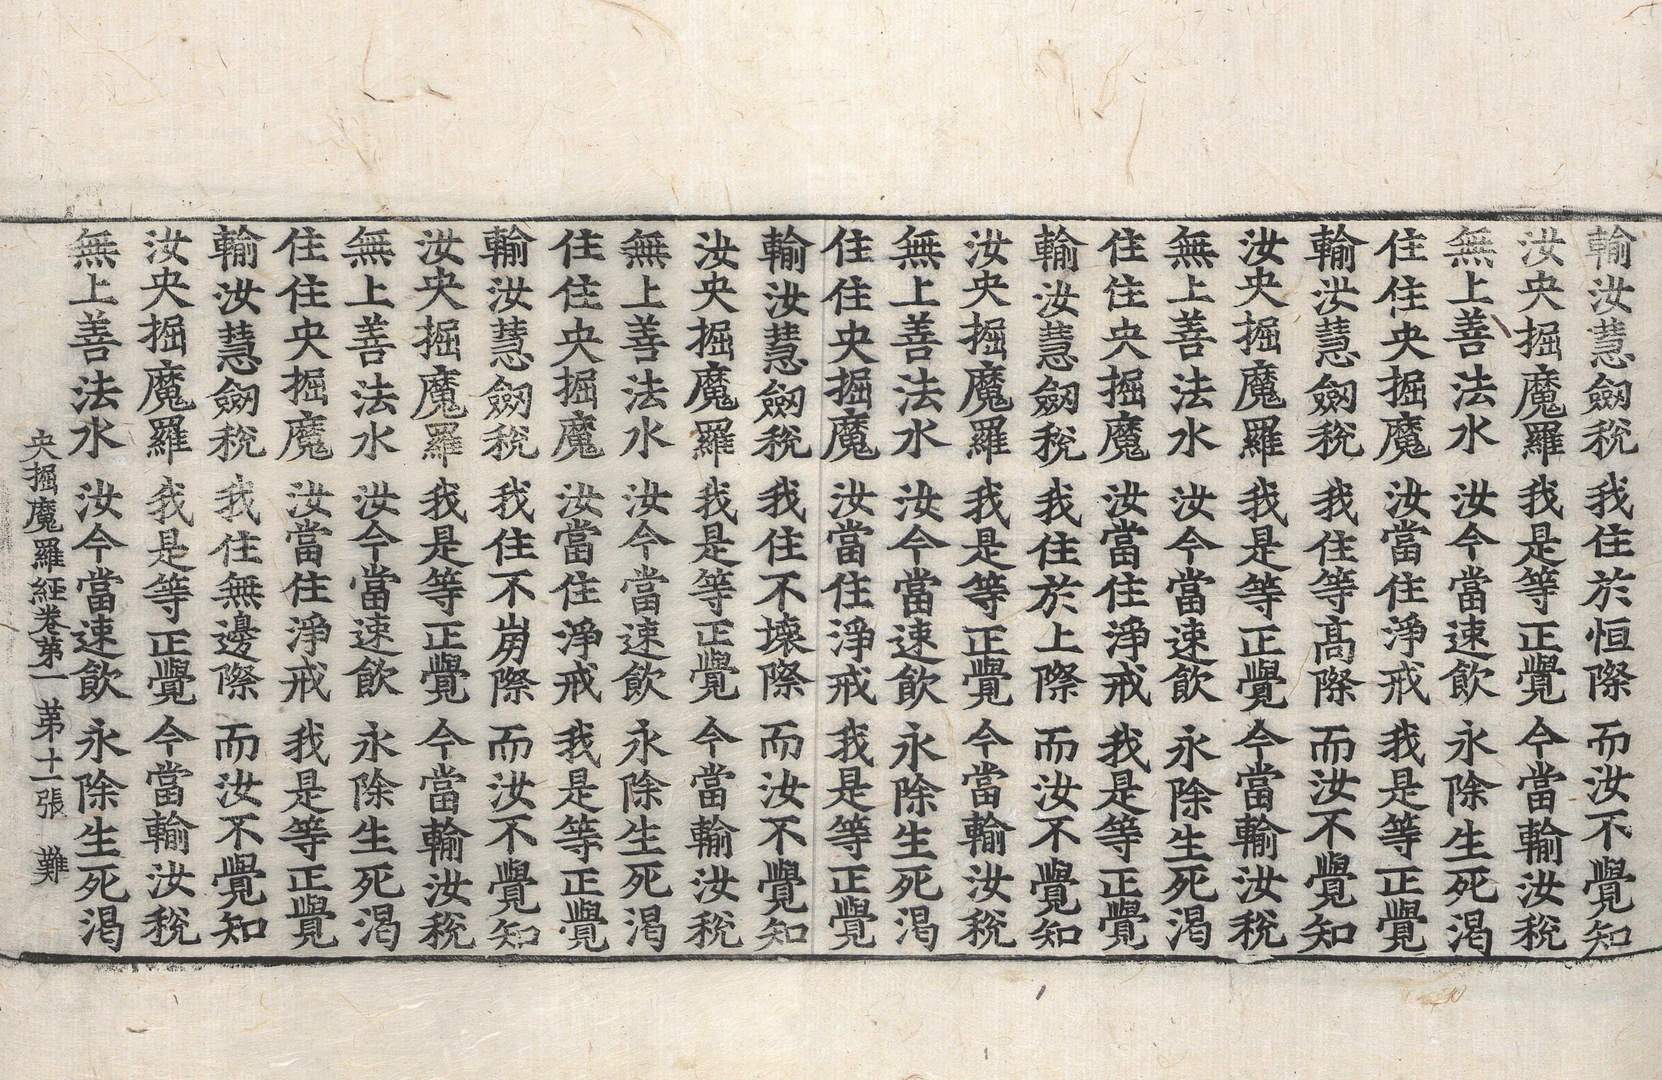 輸汝慧劔稅 我住於恒際 而汝不覺知
汝央掘魔羅 我是等正覺 今當輸汝稅
無上善法水 汝今當速飲 永除生死渴
住住央掘魔 汝當住淨戒 我是等正覺
輸汝慧劔稅 我住等高際 而汝不覺知
汝央掘魔羅 我是等正覺 今當輸汝稅
無上善法水 汝今當速飲 永除生死渴
住住央掘魔 汝當住淨戒 我是等正覺
輸汝慧劔稅 我住於上際 而汝不覺知
汝央掘魔羅 我是等正覺 今當輸汝稅
無上善法水 汝今當速飲 永除生死渴
住住央掘魔 汝當住淨戒 我是等正覺
輸汝慧劔稅 我住不壞際 而汝不覺知
汝央掘魔羅 我是等正覺 今當輸汝稅
無上善法水 汝今當速飲 永除生死渴
住住央掘魔 汝當住淨戒 我是等正覺
輸汝慧劔稅 我住不崩際 而汝不覺知
汝央掘魔羅 我是等正覺 今當輸汝稅
無上善法水 汝今當速飲 永除生死渴
住住央掘魔 汝當住淨戒 我是等正覺
輸汝慧劔稅 我住無邊際 而汝不覺知
汝央掘魔羅 我是等正覺 今當輸汝稅
無上善法水 汝今當速飲 永除生死渴
央掘魔羅經卷第一 第十一張 難